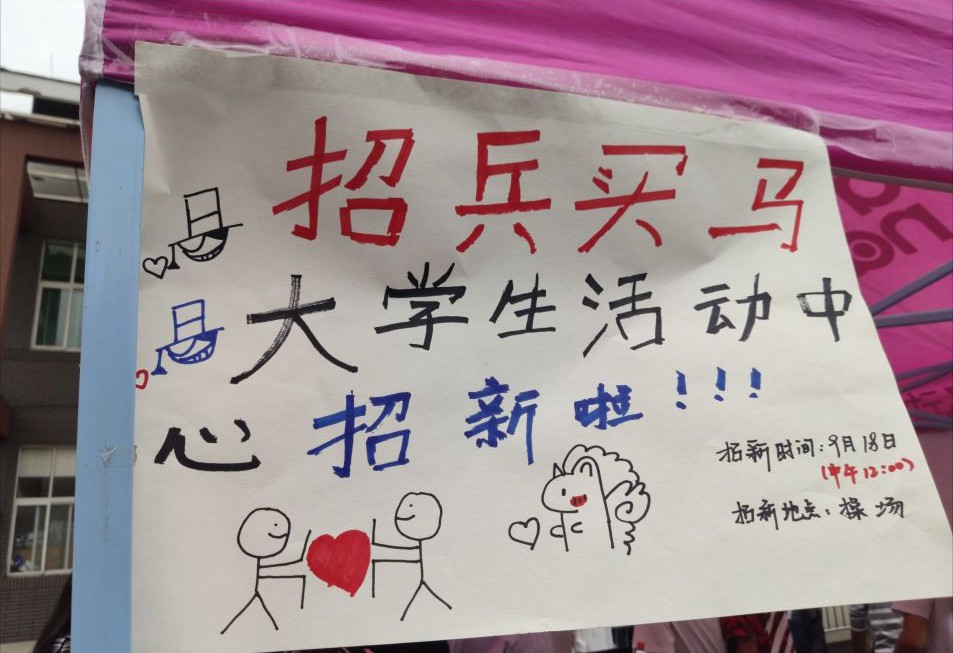 招兵买马
大学生活动中
心招新啦!!!
招新时间:9月18日
(中午12:00)
招新地点:操场